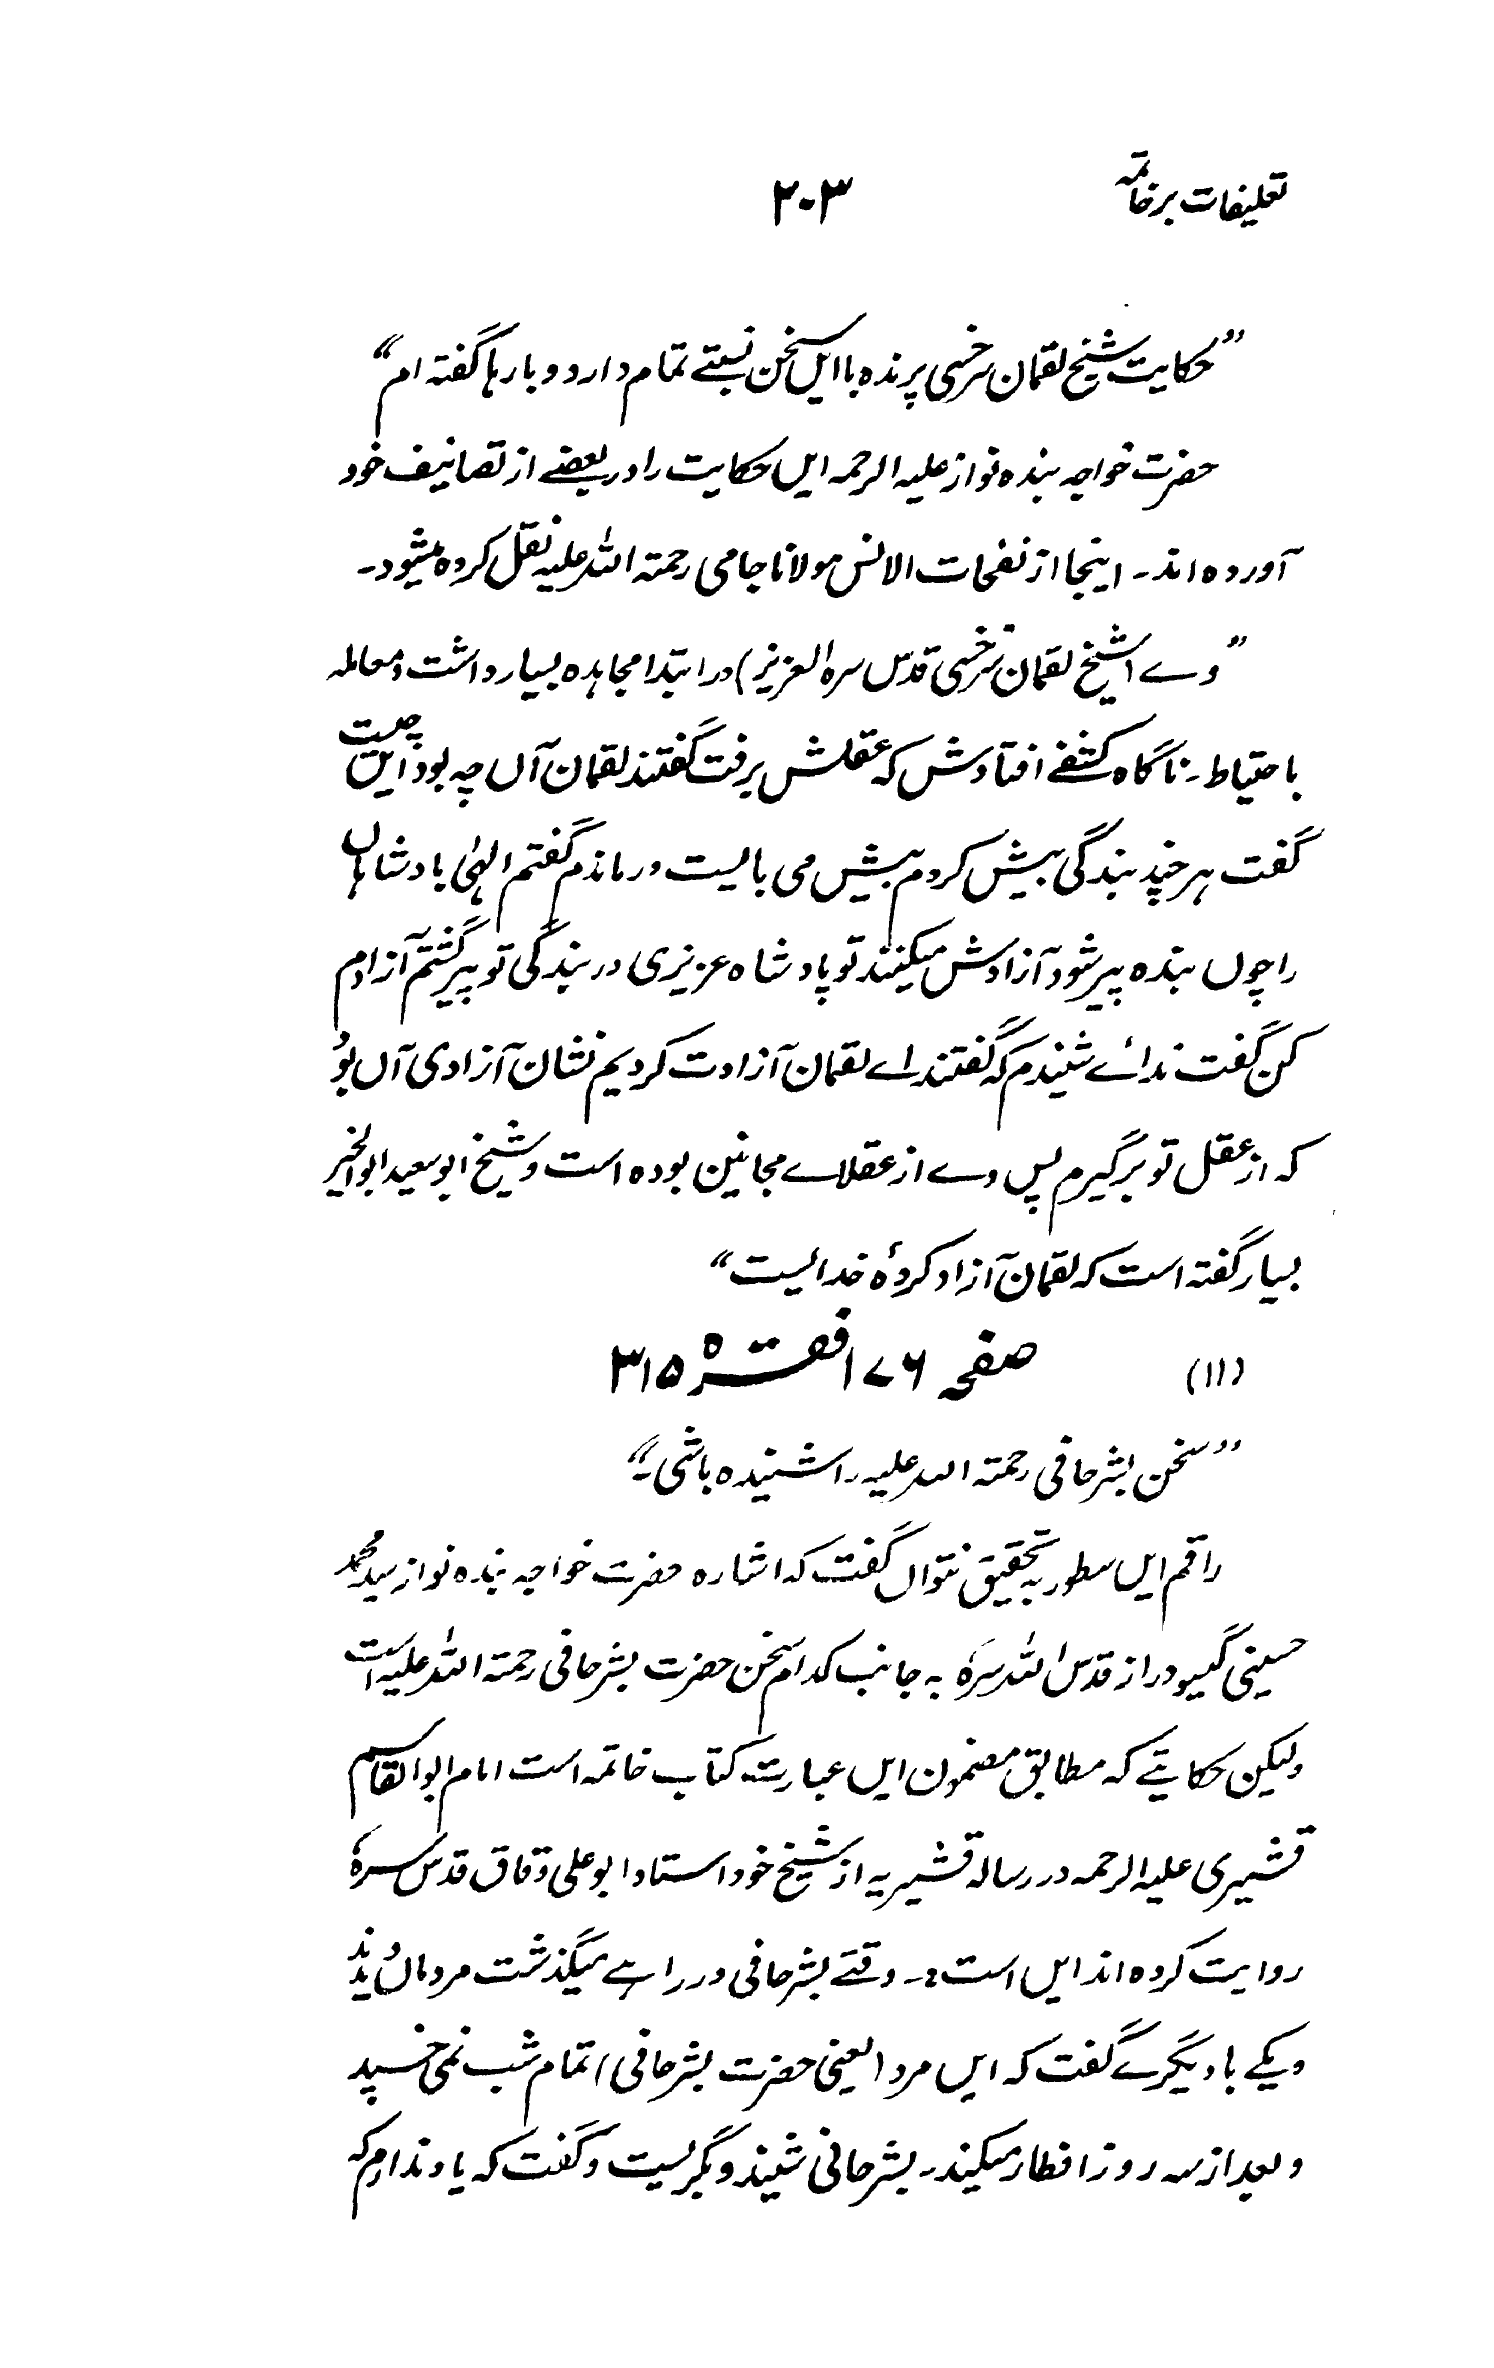 تعلیقات برخاتمہ ۲۰۳
”حکایت شیخ لقمان سرخسی پرندہ با ایں سخن نسبتے تمام دارد و بارہا گفتہ ام“
حضرت خواجہ بندہ نواز علیہ الرحمہ ایں حکایت را در بعضے از تصانیف خود
آوردہ اند۔ اینجا از نفحات الانس مولانا جامی رحمتہ اللہ علیہ نقل کردہ میشود۔
”وے (شیخ لقمان سرخسی قدس سرہ العزیز) در ابتدا مجاہدہ بسیار داشت و معاملہ
با حتیاط۔ ناگاہ کشفے افتادش کہ عقلش برفت گفتند لقمان آں چہ بود ایں چیست
گفت ہر چند بندگی بیش کردم بیش می بایست درماندم گفتم الٰہی بادشاہاں
را چوں بندہ پیر شود آزادش میکنند تو پادشاہ عزیزی در بندگی تو پیر گشتم آزادم
کن گفت ندائے شنیدم کہ گفتند اے لقمان آزادت کردیم نشان آزادی آں بود
کہ از عقل تو برگیرم پس وے از عقلاے مجانین بودہ است و شیخ ابو سعید ابوالخیر
بسیار گفتہ است کہ لقمان آزاد کردۂ خدایست“
(۱۱) صفحہ ۱۷۶ فقرہ ۳۱۵
”سخن بشر حافی رحمتہ اللہ علیہ را شنیدہ باشی۔“
راقم ایں سطور بہ تحقیق نتواں گفت کہ اشارہ حضرت خواجہ بندہ نواز سید محمد
حسینی گیسو دراز قدس اللہ سرہٗ بہ جانب کدام سخن حضرت بشر حافی رحمتہ اللہ علیہ است
ولیکن حکایتے کہ مطابق مضمون ایں عبارت کتاب خاتمہ است امام ابوالقاسم
قشیری علیہ الرحمہ در رسالہ قشیریہ از شیخ خود استاد ابو علی دقاق قدس سرہٗ
روایت کردہ اند ایں است:۔ وقتے بشر حافی در راہے میگذشت مردماں دیدند
و یکے با دیگرے گفت کہ ایں مرد (یعنی حضرت بشر حافی) تمام شب نمی خسپد
و بعد از سہ روز افطار میکند۔ بشر حافی شنید و بگریست و گفت کہ یاد ندارم کہ